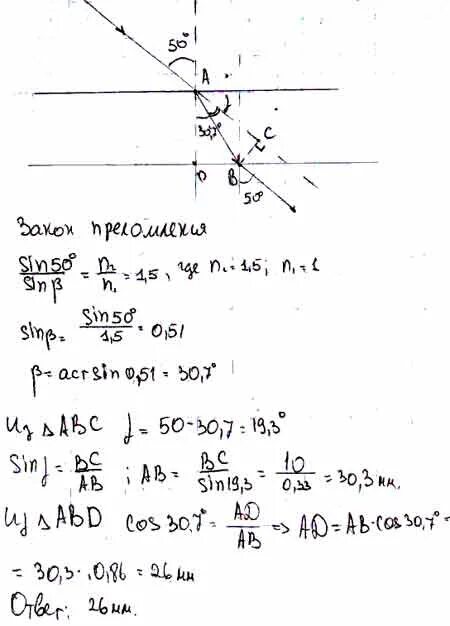 50°
A
30,7°
C
D
B
50°
Закон преломления
sin50°/sinβ = n₂/n₁ = 1,5, где n₂=1,5; n₁=1
sinβ = sin50°/1,5 = 0,51
β = arcsin 0,51 = 30,7°
Из △ABC γ = 50-30,7=19,3°
Sinγ = BC/AB ; AB = BC/sin19,3 = 10/0,33 = 30,3 мм.
Из △ABD cos 30,7° = AD/AB => AD = AB·cos30,7° =
= 30,3·0,86 = 26 мм
Ответ: 26 мм.